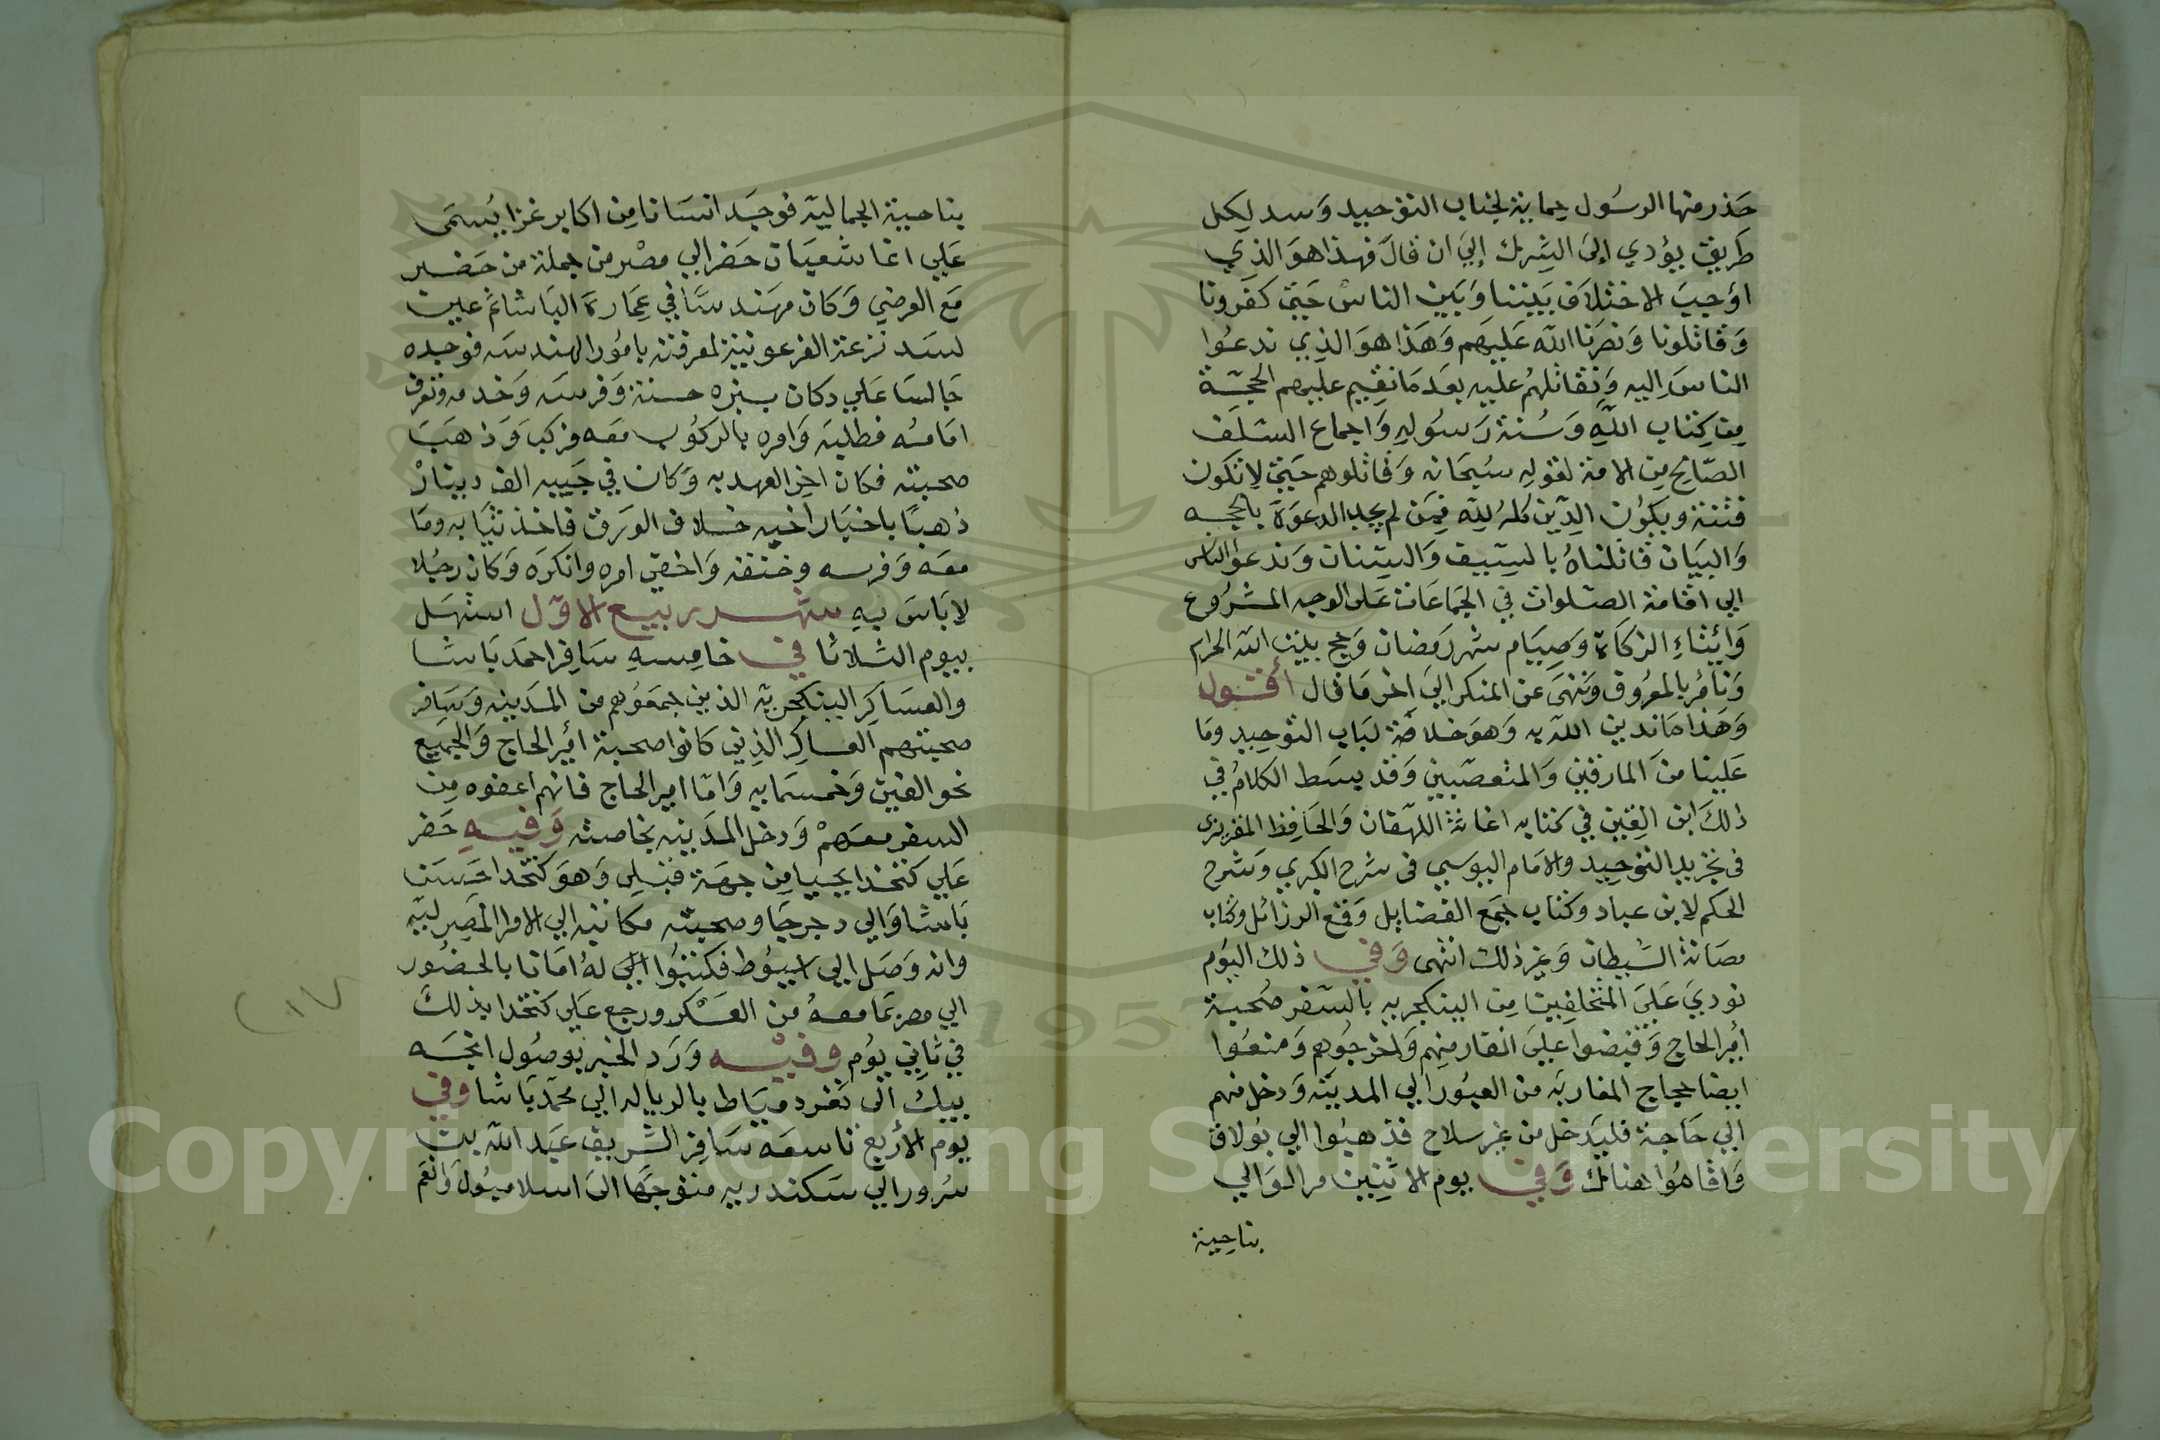 حذر منها الرسول حماية لجناب التوحيد وسد لكل
طريق يؤدي إلى الشرك إلى ان قال فهذا هو الذي
اوجب الاختلاف بيننا وبين الناس حتى كفرونا
وقاتلونا ونصرنا الله عليهم وهذا هو الذي ندعوا
الناس اليه ونقاتلهم عليه بعد ما نقيم عليهم الحجة
من كتاب الله وسنة رسوله واجماع السلف
الصالح من الامة لقوله سبحانه وقاتلوهم حتى لا تكون
فتنة ويكون الدين كله لله فمن لم يجب الدعوة بالحجه
والبيان قاتلناه بالسيف والسنان وندعوا الناس
الي اقامة الصلوات في الجماعات على الوجه المشروع
وايتاء الزكاة وصيام شهر رمضان وحج بيت الله الحرام
ونامر بالمعروف وننهى عن المنكر الى اخر ما قال أقول
وهذا ما ندين الله به وهو خلاصة لباب التوحيد وما
علينا من المارقين والمتعصبين وقد بسط الكلام في
ذلك ابن القين في كتابه اغاثة اللهفان والحافظ المقريزى
في تجريد التوحيد والامام اليوسي في شرح الكبري وشرح
الحكم لابن عباد وكتاب جمع الفضايل وقمع الرزائل وكتاب
مصائد الشيطان وغير ذلك انتهى وفي ذلك اليوم
نودي على المتخلفين من الينكجريه بالسفر صحبة
أمير الحاج وقبضوا على انفار منهم واخرجوهم ومنعوا
ايضا حجاج المغاربه من العبور الي المدينه ودخل منهم
الي حاجة فليدخل من غير سلاح فذهبوا الي بولاق
واقاموا هناك وفي يوم الاثنين مر الوالي
بناحية
بناحية الجمالية فوجد انسانا من اكابر غزا يسمى
علي اغا شعبان حضر الي مصر من جملة من حضر
مع العرضي وكان مهندسا في عمارة الباشا ثم عين
لسد ترعة الفرعونية لمعرفته بامور الهندسه فوجده
جالسا على دكان بنزه حسنة وفرسه وخدمه وتفرق
امامه فطلبه وامره بالركوب معه فركب وذهب
صحبته فكان اخر العهد به وكان في جيبه الف دينار
ذهبا باخبار اخيه خلاف الورق فاخذ ثيابه وما
معه وفرسه وخنقه واخفي امره وانكره وكان رجلا
لا باس به شهر ربيع الاول استهل
بيوم الثلاثا في خامسه سافر احمد باشا
والعساكر الينكجريه الذين جمعوهم من المدينه وسافر
صحبتهم العساكر الذين كانوا صحبة امير الحاج والجميع
نحو الفين وخمسمايه واما امير الحاج فانهم اعفوه من
السفر معهم ودخل المدينه بخاصته وفيه حضر
علي كتخدا يحيا من جهة قبلى وهو كتخدا حسن
باشا والي دجرجا وصحبته مكاتبه الي الامرا المصرليه
وانه وصل الي اسيوط فكتبوا الي له امانا بالحضور
الي مصر بما معه من العسكر ورجع علي كتخدا بذلك
في ثاني يوم وفيه ورد الخبر بوصول انجه
بيك الى ثغر دمياط بالرياله الي محمد باشا وفي
يوم الاربع تاسعه سافر الشريف عبد الله بن
سرور الي سكندريه متوجها الى اسلامبول وانعم